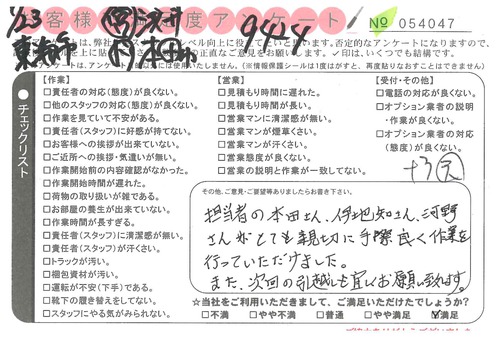 1/23
お客様満足度アンケート!
9424
№ 054047
チェックリスト
【作業】
□責任者の対応(態度)が良くない。
□他のスタッフの対応(態度)が良くない。
□作業を見ていて不安がある。
□責任者(スタッフ)に好感が持てない。
□お客様への挨拶が出来ていない。
□ご近所への挨拶・気遣いが無い。
□作業開始前の内容確認がなかった。
□作業開始時間が遅れた。
□荷物の取り扱いが雑である。
□お部屋の養生が出来ていない。
□作業時間が長すぎる。
□責任者(スタッフ)に清潔感が無い。
□責任者(スタッフ)が汗くさい。
□トラックが汚い。
□梱包資材が汚い。
□運転が不安(下手)である。
□靴下の履き替えをしてない。
□スタッフにやる気がみられない。
【営業】
□見積もり時間に遅れた。
□見積もり時間が長い。
□営業マンに清潔感が無い。
□営業マンが煙草くさい。
□営業マンが汗くさい。
□営業態度が良くない。
□営業の説明と作業が一致してない。
【受付・その他】
□電話の対応が良くない。
□オプション業者の説明
・作業が良くない。
□オプション業者の対応
(態度)が良くない。
その他、ご意見・ご要望等ありましたらお書き下さい。
担当者の本田さん、伊地知さん、河野
さんがとても親切に手際良く作業を
行っていただけました。
また、次回の引越しも宜しくお願い致します。
☆当社をご利用いただきまして、ご満足いただけたでしょうか?
□不満 □やや不満 □普通 □やや満足 ☑満足